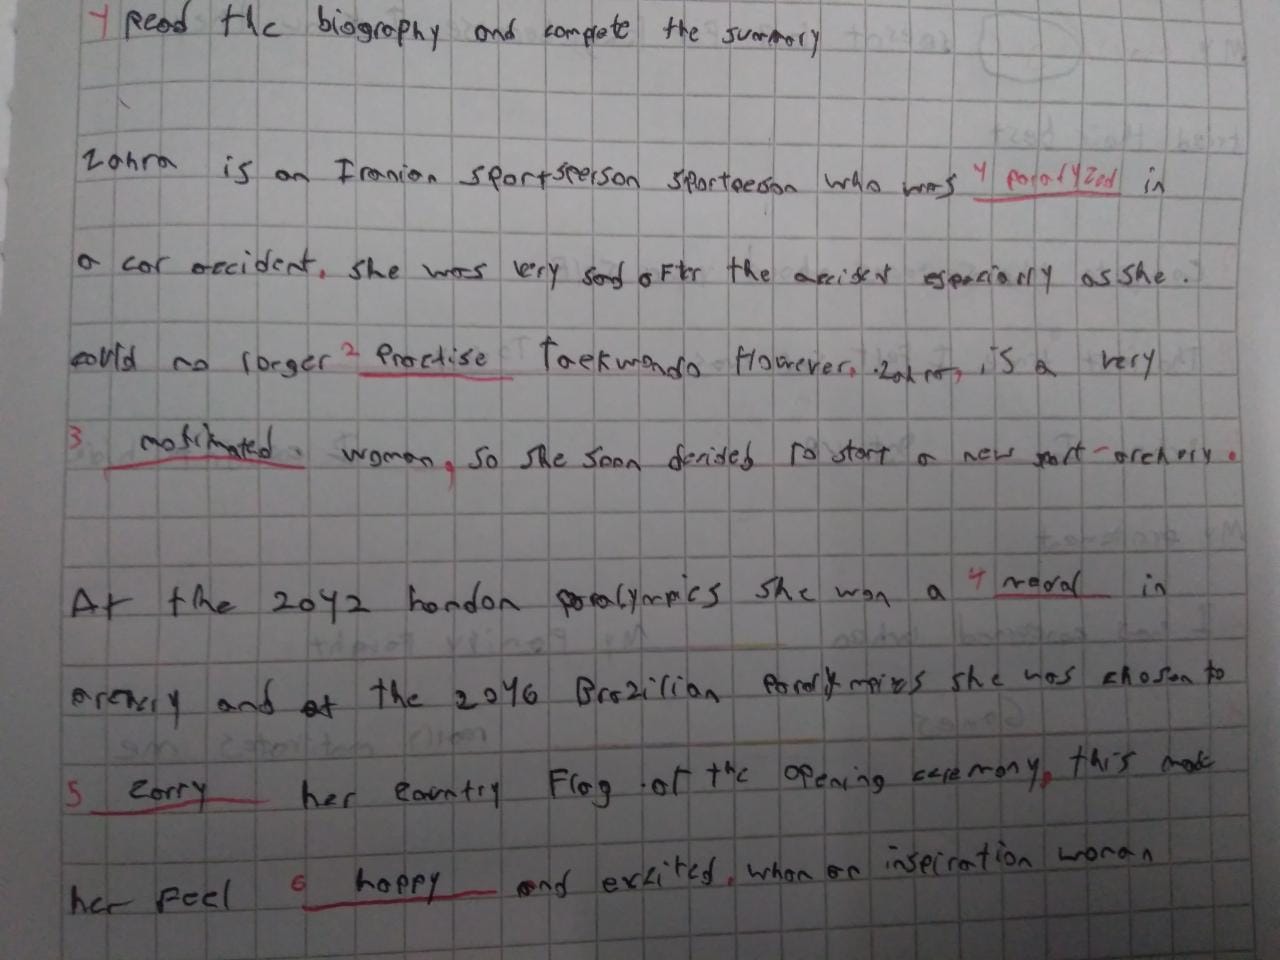 1 Read the biography and complete the summary
Zahra is an Iranian sportsperson sportperson who was 1 paralyzed in
a car accident. she was very sad after the accident especially as she.
could no longer 2 Practise Taekwondo However, Zahra, is a very
3 motivated woman, so she soon decided to start a new sport - archery.
At the 2012 London paralympics she won a 4 medal in
archery and at the 2016 Brazilian Paralympics she was chosen to
5 carry her country Flag at the opening ceremony, this made
her feel 6 happy and excited. what an inspiration woman